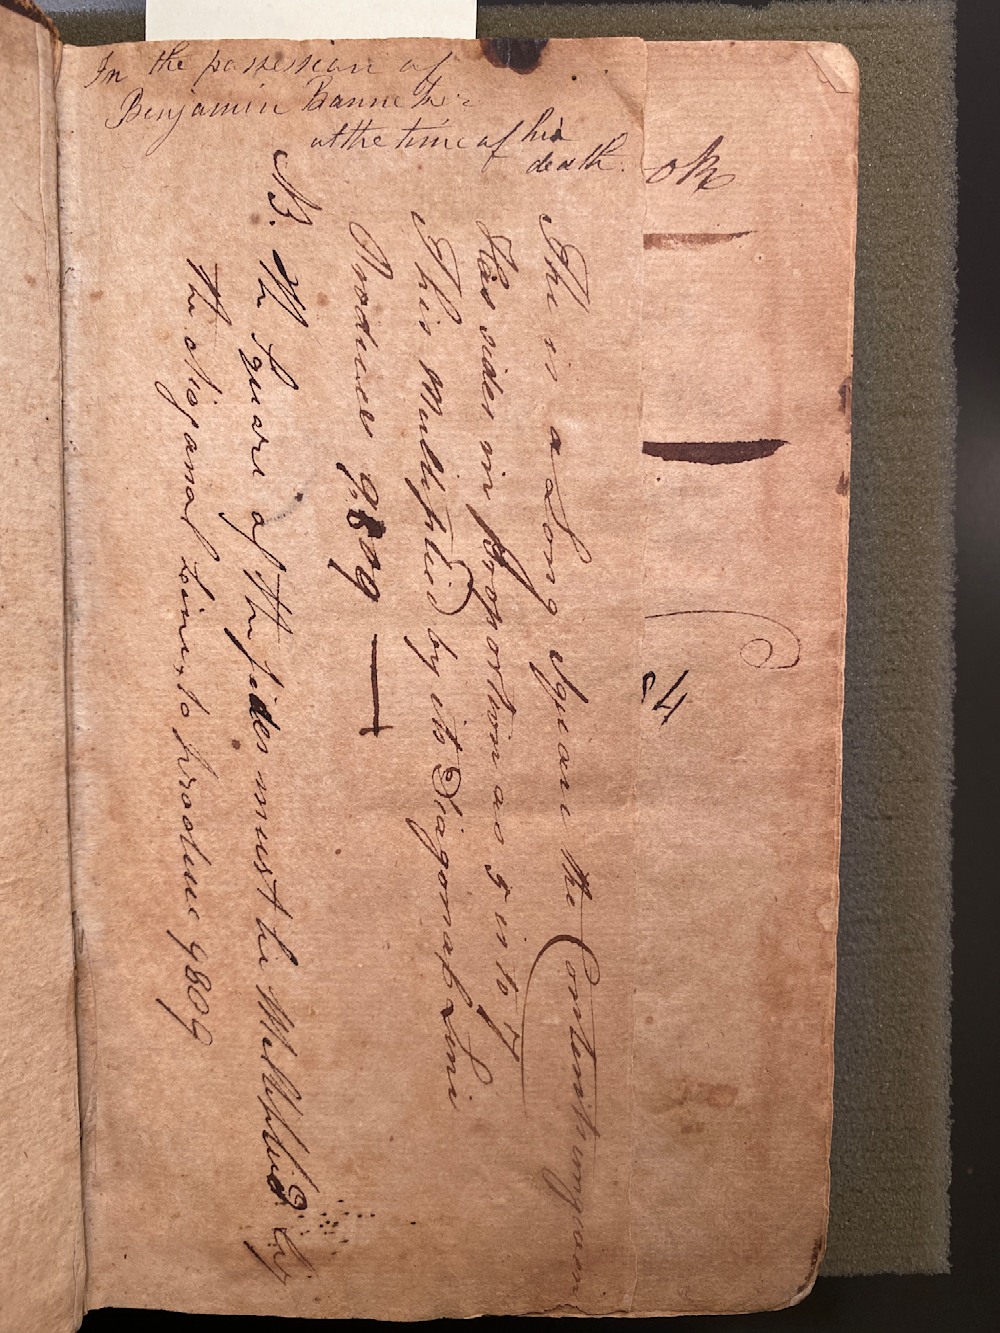 In the possession of
Benjamin Banneker
at the time of his
death.
The in a Long Square the
his sides in proportion as 5 is to 7
This Multiplied by its Diagonal Line
Produces 9809
NB. The Square of the sides must be Multiplied by
the Diganal Line to Produce 9809
ok